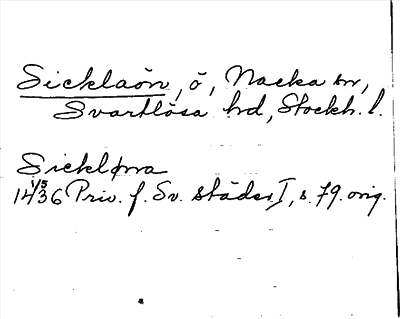 Sicklaön, ö, Nacka sn,
Svartlösa hd, Stockh. l.
Sickløna
14 1/5 36 Priv. f. Sv. städer I, s. 79. orig.